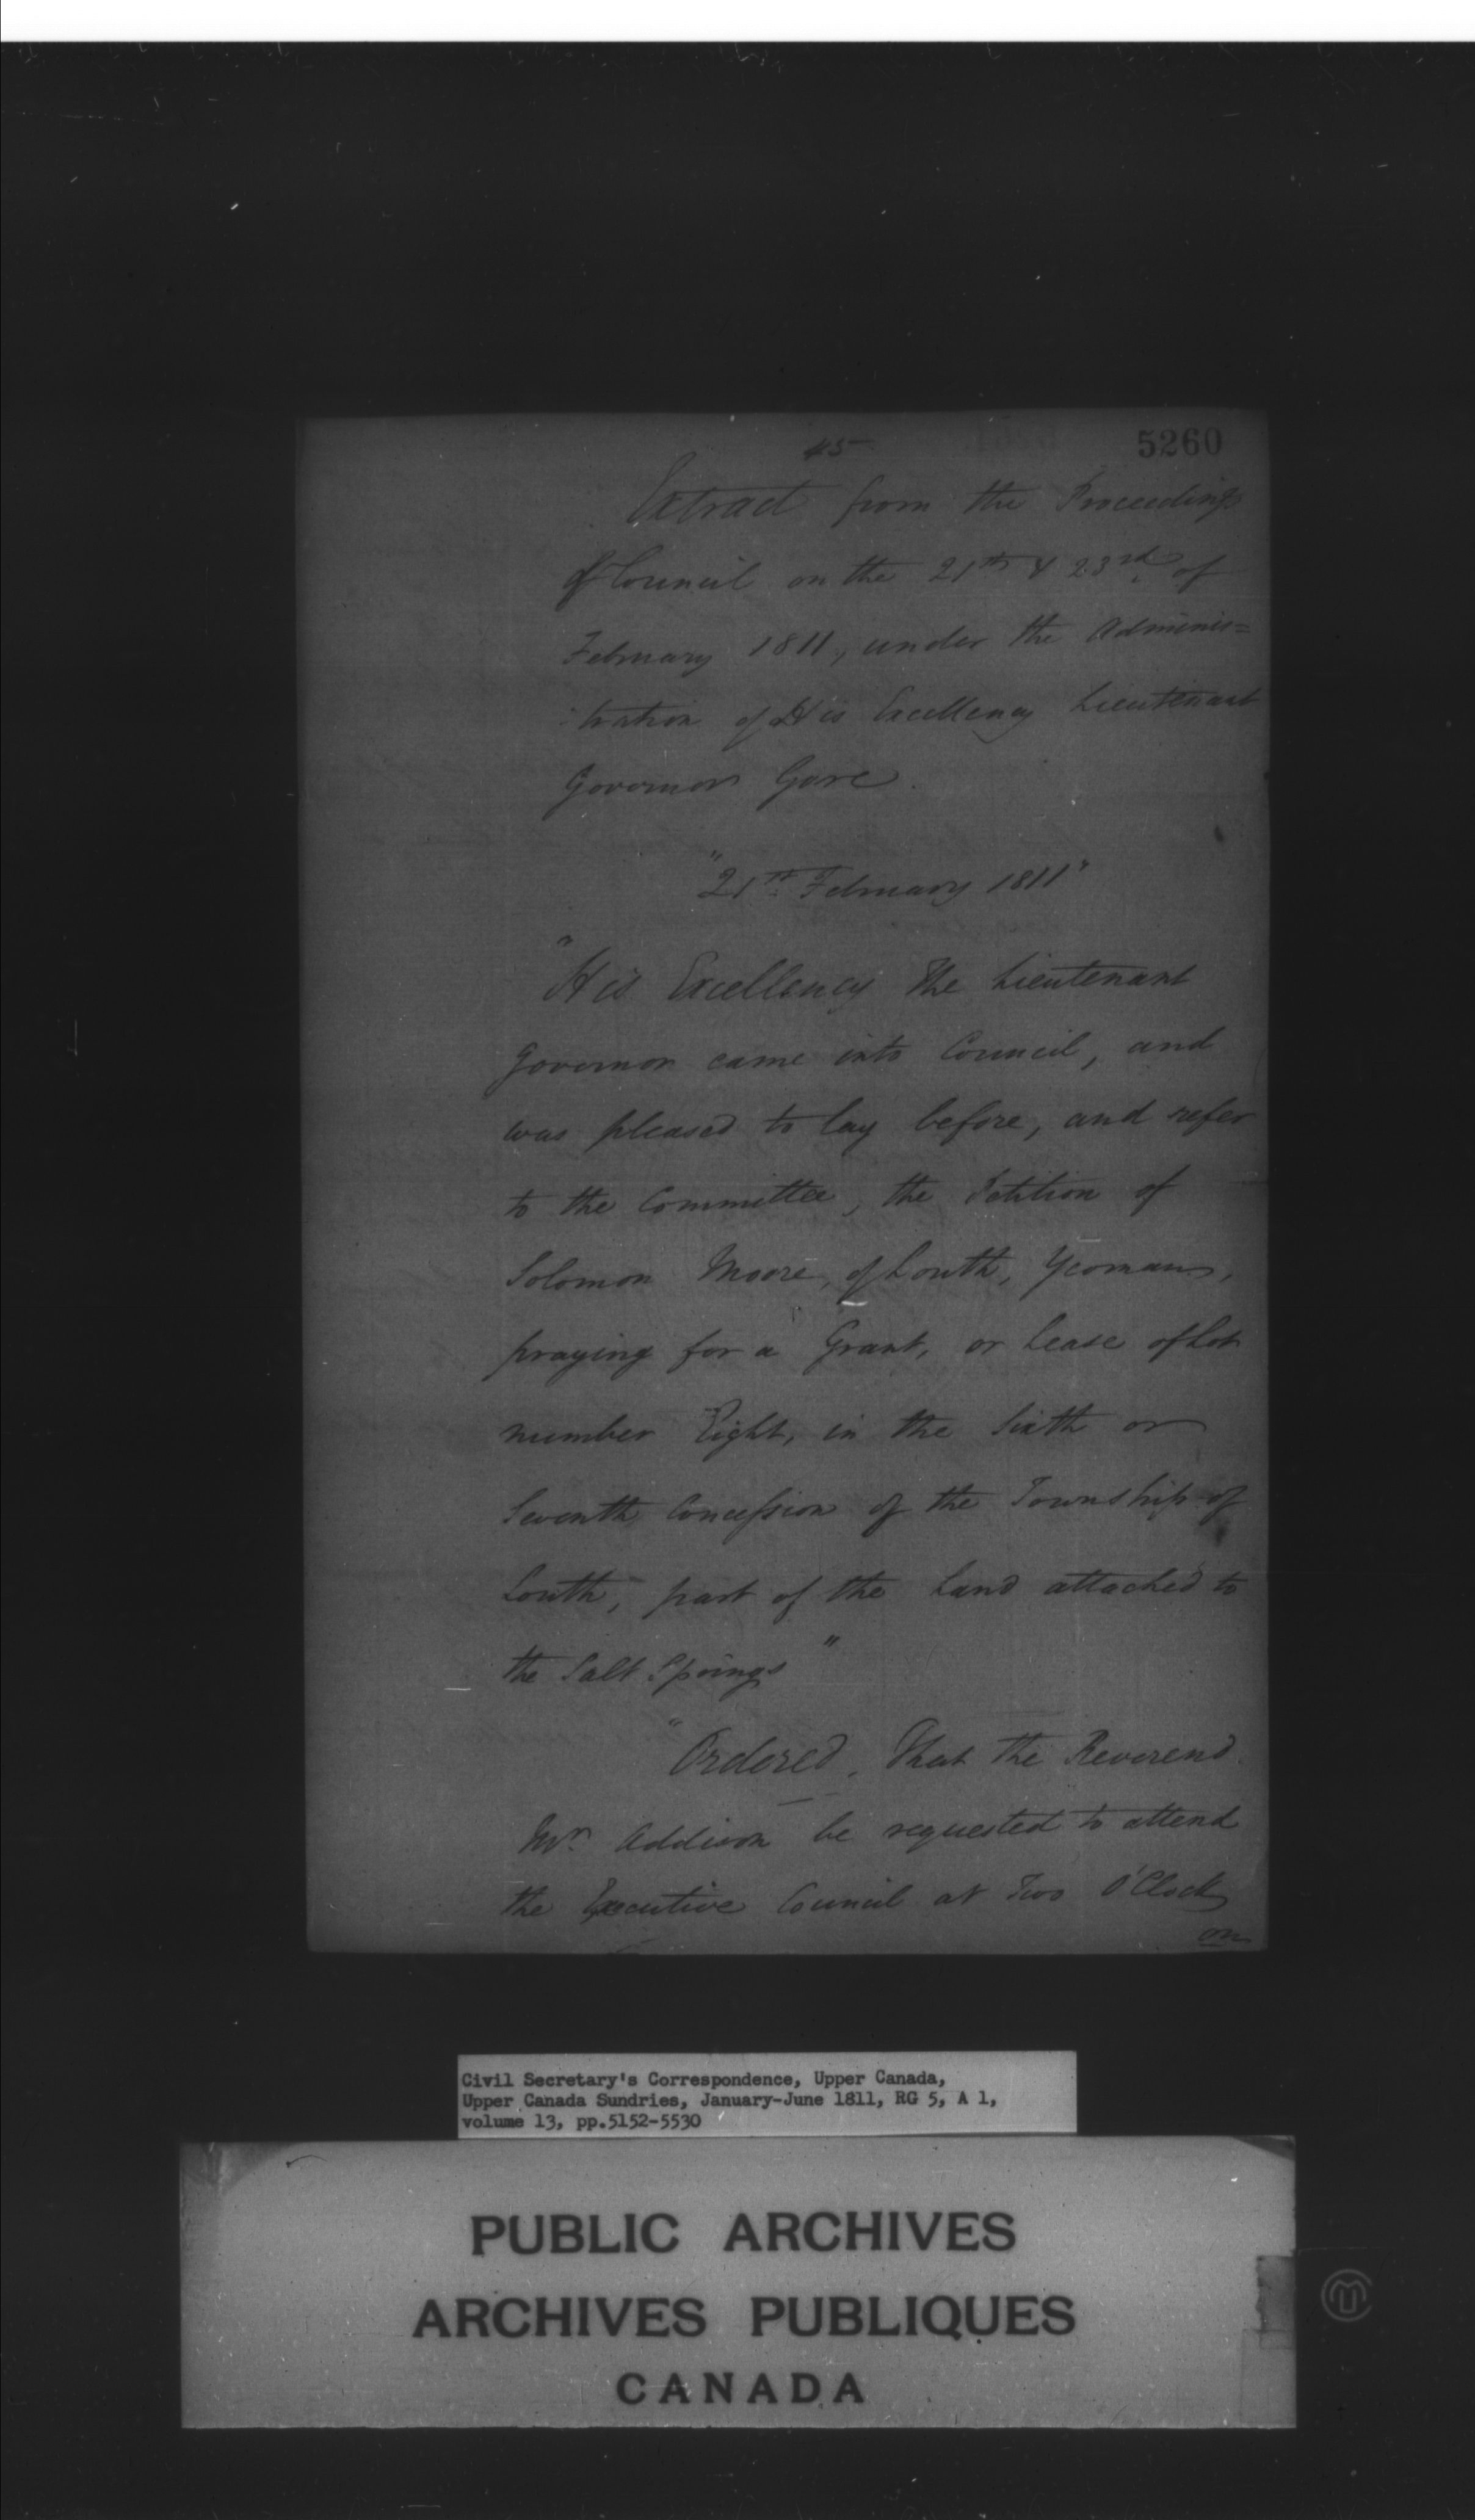 45
5260
Extract from the Proceedings
of Council on the 21th & 23rd of
February 1811, under the Adminis=
:tration of His Excellency Lieutenant
Governor Gore.
"21th February 1811"
"His Excellency the Lieutenant
Governor came into Council, and
was pleased to lay before, and refer
to the Committee, the Petition of
Solomon Moore, of Louth, Yeoman,
praying for a Grant, or Lease of Lot
number Eight, in the Sixth or
Seventh Concession of the Township of
Louth, part of the Land attached to
the Salt Springs"
"Ordered, That the Reverend
Mr. Addison be requested to attend
the Executive Council at Two O'Clock
on
Civil Secretary's Correspondence, Upper Canada,
Upper Canada Sundries, January-June 1811, RG 5, A 1,
volume 13, pp.5152-5530
PUBLIC ARCHIVES
ARCHIVES PUBLIQUES
CANADA